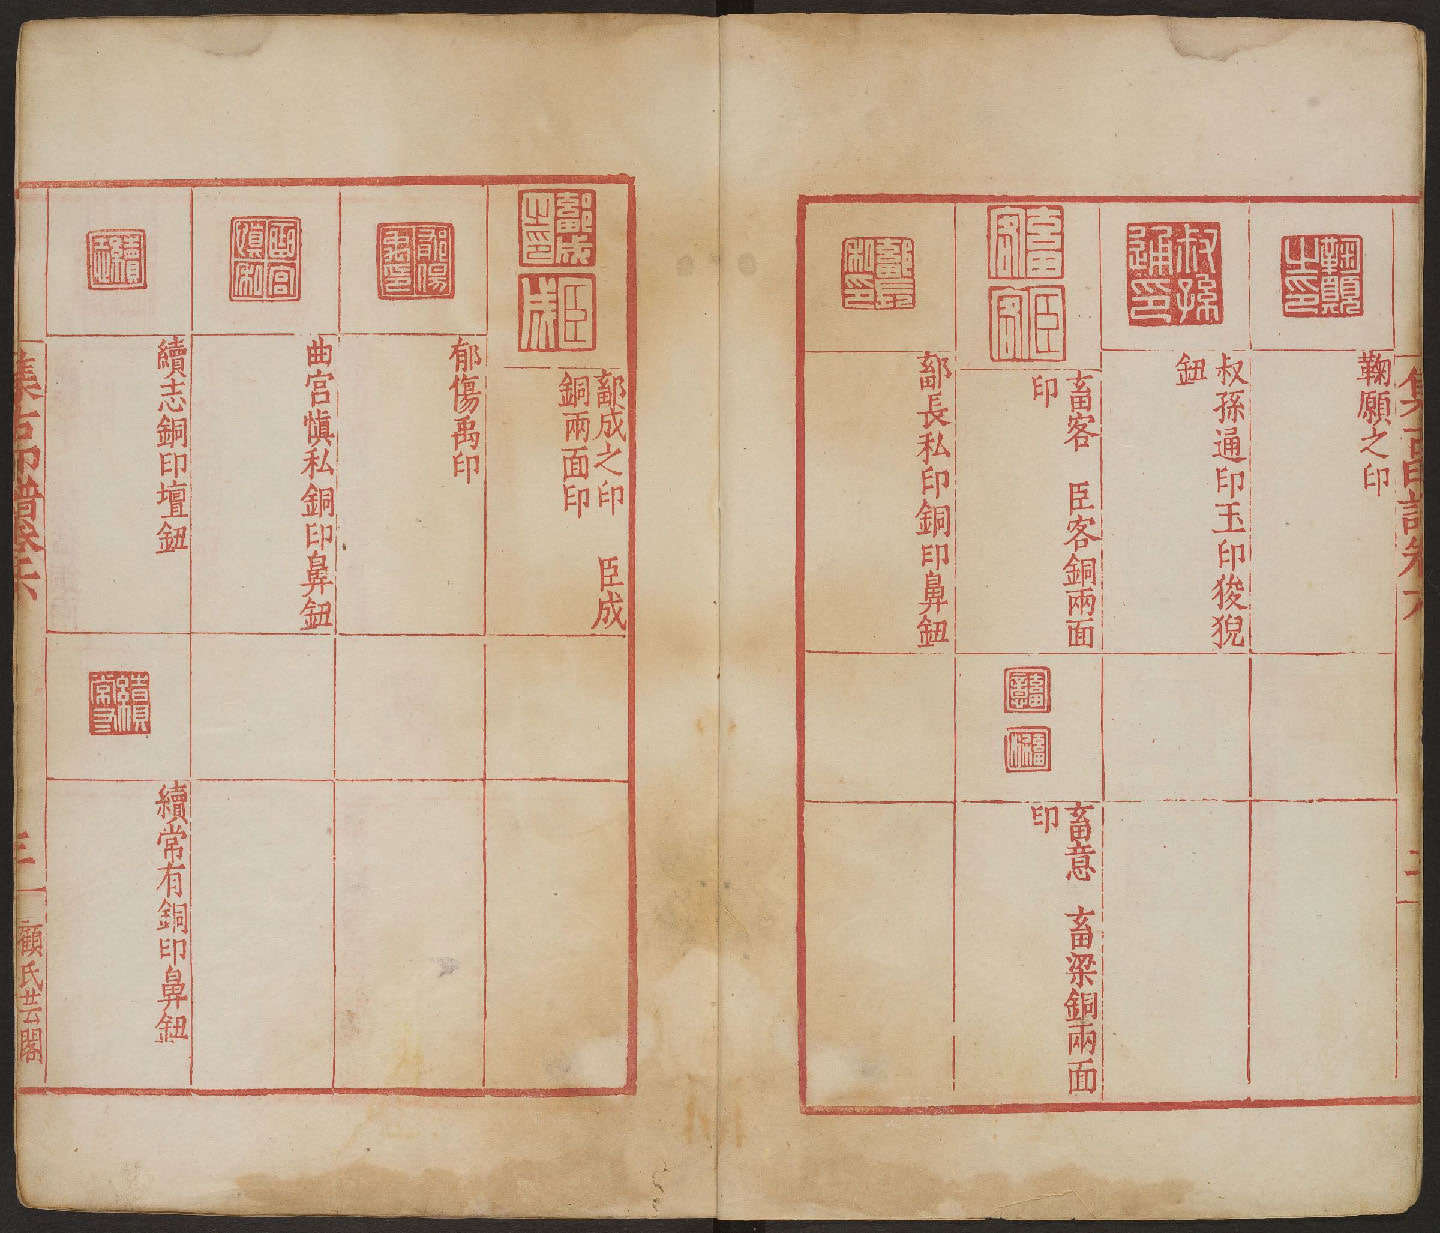 鞠願之印
叔孫通印玉印狻猊
鈕
畜客　臣客銅兩面
印
畜意　畜梁銅兩面
印
鄐長私印銅印鼻鈕
鄐成之印　臣成
銅兩面印
郁傷禹印
曲宫慎私銅印鼻鈕
續志銅印壇鈕
續常有銅印鼻鈕
集古印譜卷六
三
顧氏芸閣